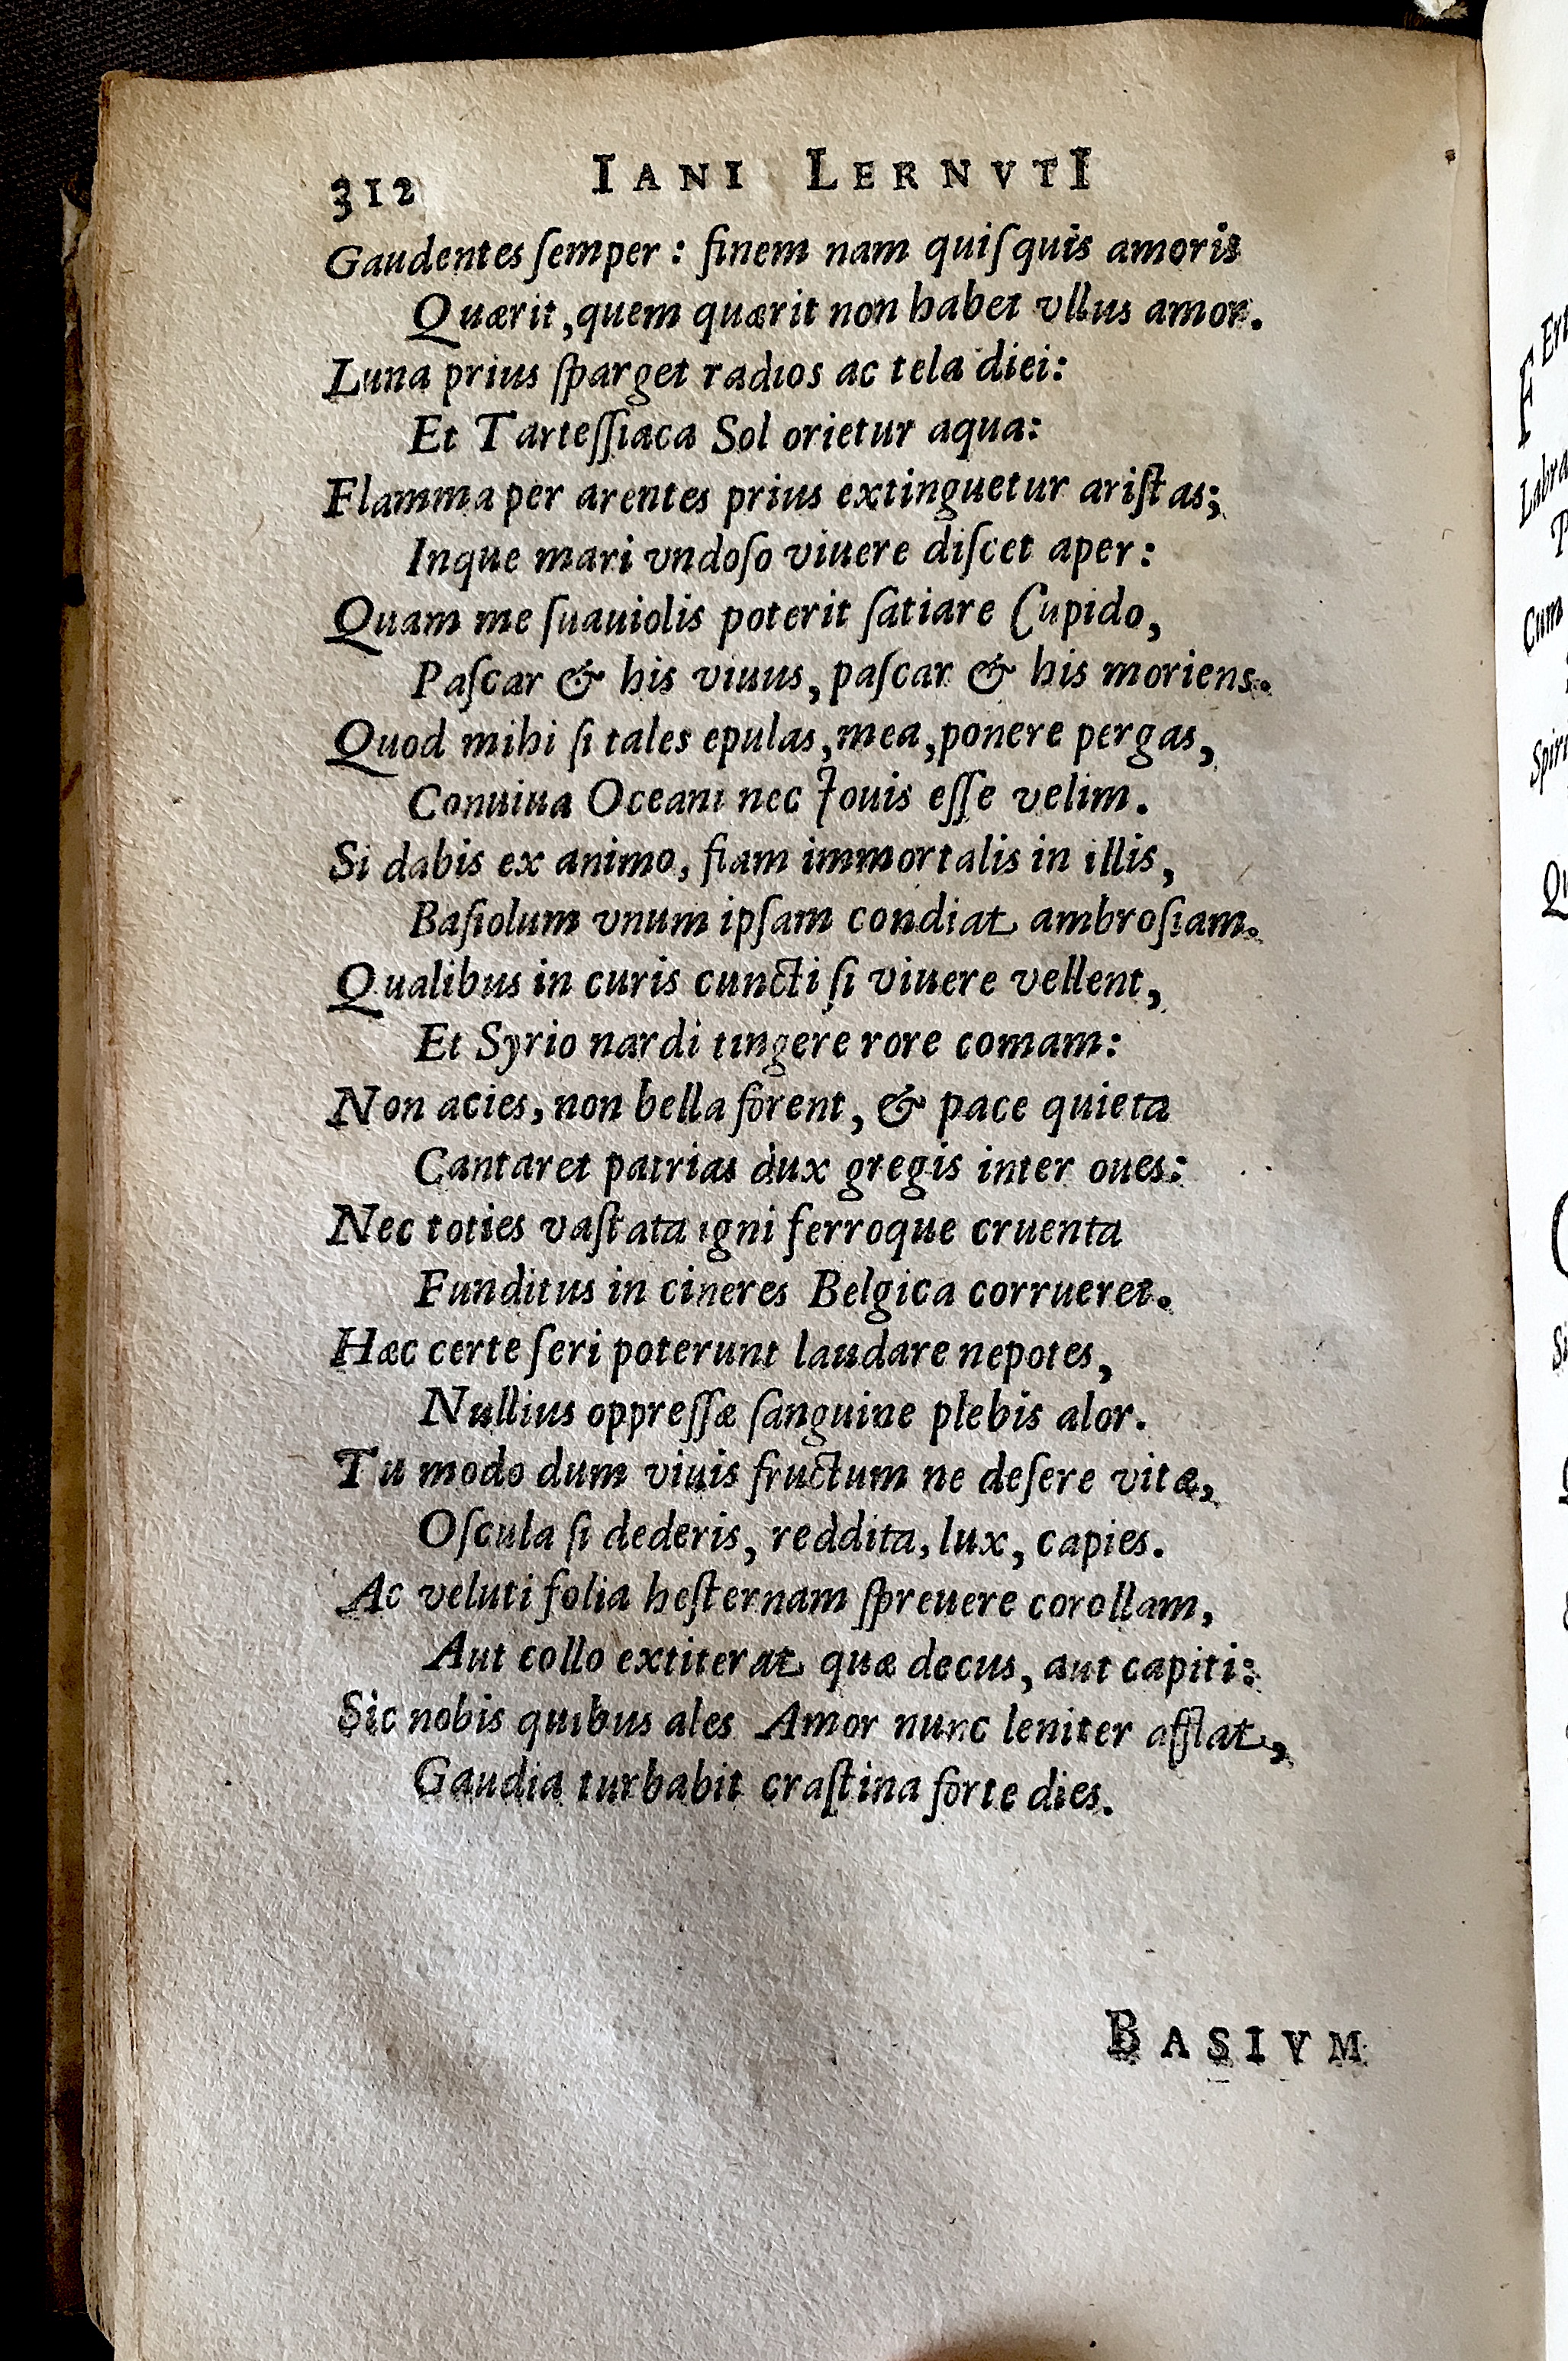 312 IANI LERNVTI
Gaudentes ſemper : finem nam quiſquis amoris
Quærit, quem quærit non habet vllus amor.
Luna prius ſparget radios ac tela diei:
Et Tarteſſiaca Sol orietur aqua:
Flamma per arentes prius extinguetur ariſtas;
Inque mari vndoſo viuere diſcet aper:
Quam me ſuauiolis poterit ſatiare Cupido,
Paſcar & his viuus, paſcar & his moriens.
Quod mihi ſi tales epulas, mea, ponere pergas,
Conuiua Oceani nec Iouis eſſe velim.
Si dabis ex animo, fiam immortalis in illis,
Baſiolum vnum ipſam condiat ambroſiam.
Qualibus in curis cuncti ſi viuere vellent,
Et Syrio nardi tingere rore comam:
Non acies, non bella forent, & pace quieta
Cantaret patrias dux gregis inter oues:
Nec toties vaſtata igni ferroque cruenta
Funditus in cineres Belgica corrueret.
Hæc certe ſeri poterunt laudare nepotes,
Nullius oppreſſæ ſanguine plebis alor.
Tu modo dum viuis fructum ne deſere vitæ,
Oſcula ſi dederis, reddita, lux, capies.
Ac veluti folia heſternam ſpreuere corollam,
Aut collo extiterat quæ decus, aut capiti:
Sic nobis quibus ales Amor nunc leniter afflat,
Gaudia turbabit craſtina forte dies.
BASIVM